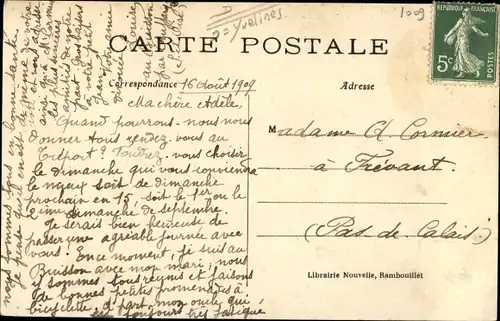 Yvelines
1009
CARTE POSTALE
RÉPUBLIQUE FRANÇAISE
5c
POSTES
Correspondance
16 Août 1909
Adresse
Ma chère Adèle,
Quant pourrons-nous nous
donner tous rendez-vous au
Tréport? Voudrez-vous choisir
le dimanche qui vous conviendra
le mieux soit de dimanche
prochain en 15, soit le 1er ou le
2ième dimanche de septembre.
Je serais bien heureuse de
passer une agréable journée avec
vous! En ce moment, je suis au
Buisson avec mon mari; nous
y sommes tous réunis et faisons
de bonnes petites promenades à
bicyclette, à part mon oncle qui
est toujours très fatigué
Madame A. Cormier
à Frévent.
(Pas-de-Calais)
Librairie Nouvelle, Rambouillet
nous sommes tous en bonne santé.
Je pense qu'il en est de même de